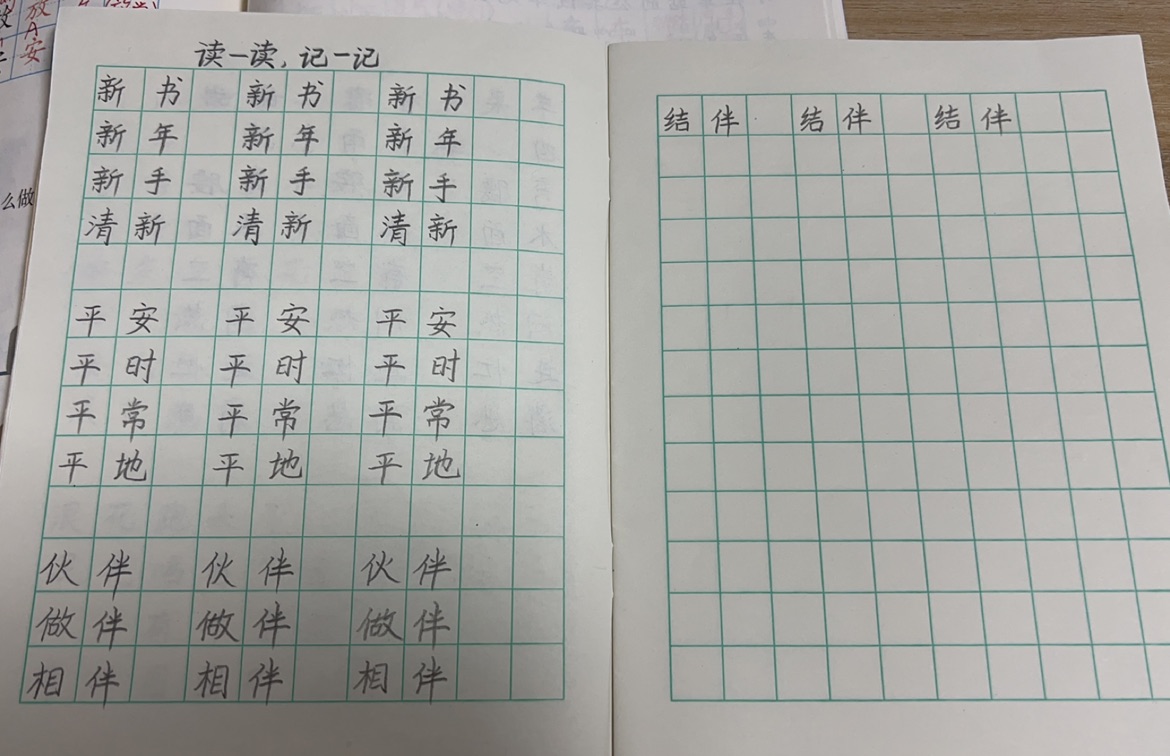 放
A
安
么做
读一读，记一记
新书 新书 新书
新年 新年 新年
新手 新手 新手
清新 清新 清新
平安 平安 平安
平时 平时 平时
平常 平常 平常
平地 平地 平地
伙伴 伙伴 伙伴
做伴 做伴 做伴
相伴 相伴 相伴
结伴 结伴 结伴